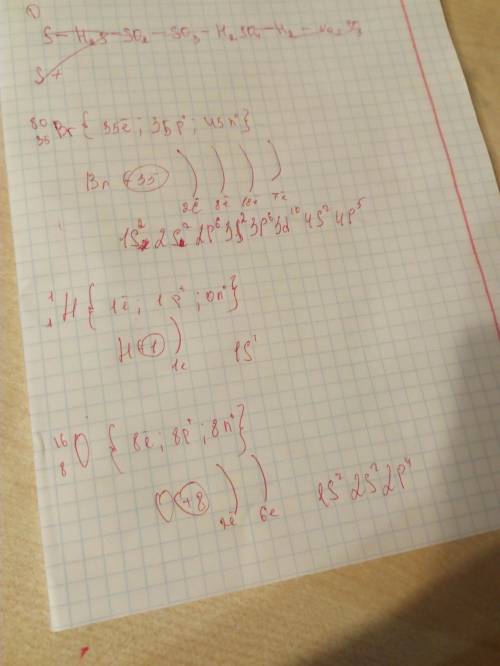 1
S - H₂S - SO₂ - SO₃ - H₂SO₄ - H₂ - Na₂SO₃
S +
⁸⁰₃₅Br { 35ē ; 35p⁺ ; 45n° }
Br +35 ) ) ) )
2ē 8ē 18ē 7ē
1S² 2S² 2p⁶ 3S² 3p⁶ 3d¹⁰ 4S² 4p⁵
¹₁H { 1ē ; 1p⁺ ; 0n° }
H +1 ) 1S¹
1ē
¹⁶₈O { 8ē ; 8p⁺ ; 8n° }
O +8 ) ) 1S² 2S² 2p⁴
2ē 6ē